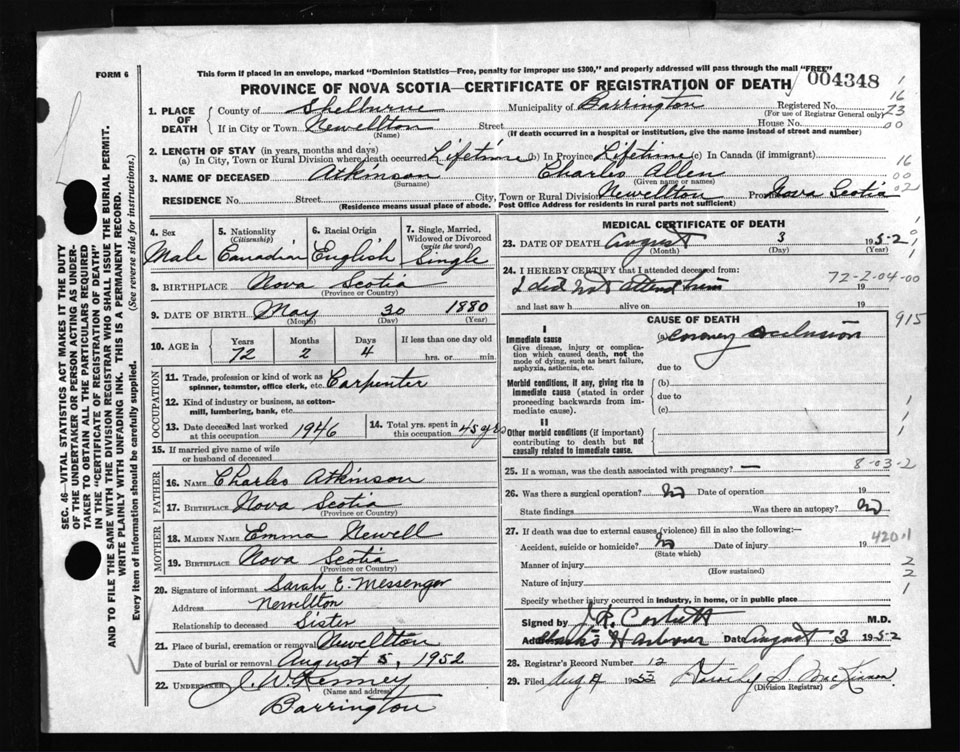 FORM 6
This form if placed in an envelope, marked "Dominion Statistics—Free, penalty for improper use $300," and properly addressed will pass through the mail "FREE"
PROVINCE OF NOVA SCOTIA—CERTIFICATE OF REGISTRATION OF DEATH
004348
1. PLACE OF DEATH
County of Shelburne Municipality of Barrington Registered No.
(For use of Registrar General only)
If in City or Town Newellton Street House No.
(Name) (If death occurred in a hospital or institution, give the name instead of street and number)
2. LENGTH OF STAY (in years, months and days)
(a) In City, Town or Rural Division where death occurred Lifetime (b) In Province Lifetime (c) In Canada (if immigrant)
3. NAME OF DECEASED Atkinson Charles Allen
(Surname) (Given name or names)
RESIDENCE No. Street City, Town or Rural Division Newellton Pro Nova Scotia
(Residence means usual place of abode. Post Office Address for residents in rural parts not sufficient)
4. Sex
Male
5. Nationality
(Citizenship)
Canadian
6. Racial Origin
English
7. Single, Married, Widowed or Divorced
(write the word)
Single
8. BIRTHPLACE Nova Scotia
(Province or Country)
9. DATE OF BIRTH May 30 1880
(Month) (Day) (Year)
10. AGE in
Years Months Days If less than one day old
72 2 4 hrs. or min.
OCCUPATION
11. Trade, profession or kind of work as spinner, teamster, office clerk, etc. Carpenter
12. Kind of industry or business, as cotton-mill, lumbering, bank, etc.
13. Date deceased last worked at this occupation 1946
14. Total yrs. spent in this occupation 45 yrs
15. If married give name of wife or husband of deceased
FATHER
16. NAME Charles Atkinson
17. BIRTHPLACE Nova Scotia
(Province or Country)
MOTHER
18. MAIDEN NAME Emma Newell
19. BIRTHPLACE Nova Scotia
(Province or Country)
20. Signature of informant Sarah E. Messenger
Address Newellton
Relationship to deceased Sister
21. Place of burial, cremation or removal Newellton
Date of burial or removal August 5, 1952
22. UNDERTAKER J. W. Kenney
(Name and address)
Barrington
MEDICAL CERTIFICATE OF DEATH
23. DATE OF DEATH August 3 1952
(Month) (Day) (Year)
24. I HEREBY CERTIFY that I attended deceased from:
72-2-04-00
I did not attend him 19
and last saw h alive on 19
CAUSE OF DEATH
915
I
Immediate cause
Give disease, injury or complication which caused death, not the mode of dying, such as heart failure, asphyxia, asthenia, etc.
(a) Coronary occlusion
due to
Morbid conditions, if any, giving rise to immediate cause (stated in order proceeding backwards from immediate cause).
(b)
due to
(c)
II
Other morbid conditions (if important) contributing to death but not causally related to immediate cause.
25. If a woman, was the death associated with pregnancy? —
8-03-2
26. Was there a surgical operation? No Date of operation 19
State findings Was there an autopsy? No
27. If death was due to external causes (violence) fill in also the following:—
Accident, suicide or homicide? No Date of injury 19
(State which)
420.1
Manner of injury
(How sustained)
Nature of injury
Specify whether injury occurred in industry, in home, or in public place
Signed by M.D.
Address Clark's Harbour Date August 3 1952
28. Registrar's Record Number 12
29. Filed Aug 1953 Dorothy S. MacKinnon
(Division Registrar)
SEC. 46—VITAL STATISTICS ACT MAKES IT THE DUTY OF THE UNDERTAKER OR PERSON ACTING AS UNDERTAKER TO OBTAIN ALL THE PARTICULARS REQUIRED IN THE "CERTIFICATE OF REGISTRATION OF DEATH" AND TO FILE THE SAME WITH THE DIVISION REGISTRAR WHO SHALL ISSUE THE BURIAL PERMIT.
WRITE PLAINLY WITH UNFADING INK. THIS IS A PERMANENT RECORD.
Every item of information should be carefully supplied. (See reverse side for instructions.)